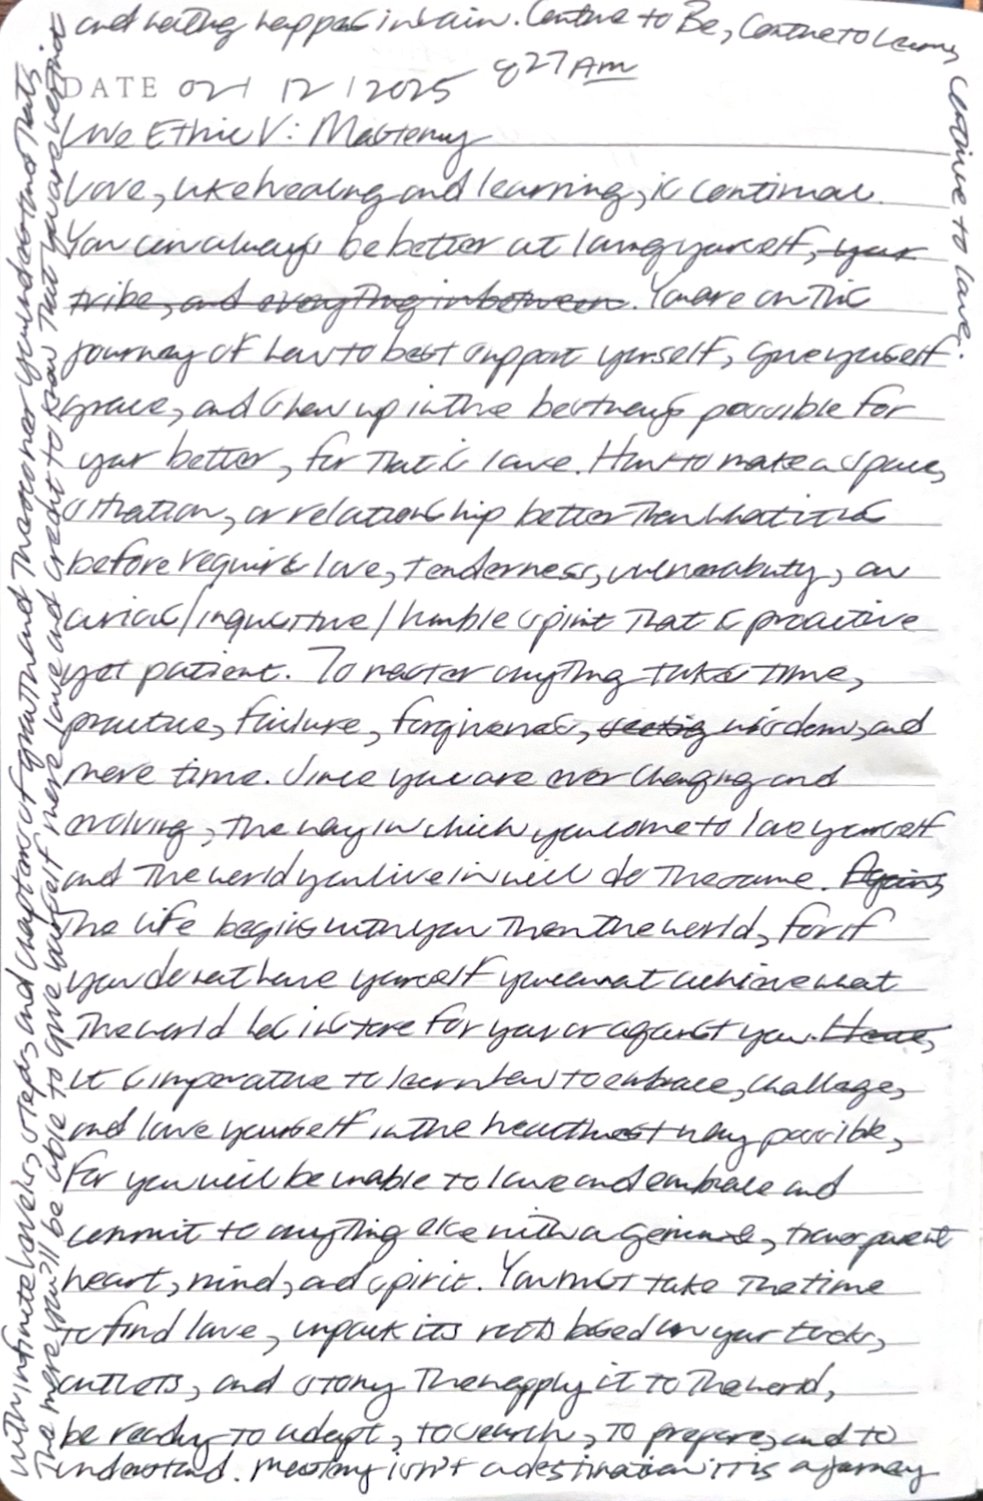 DATE 02/ 12 / 2025 827 AM
Love Ethic V: Mastering
Love, like healing and learning, is continual.
You can always be better at loving yourself, your
tribe, and everything in between. You are on this
journey of how to best support yourself, give yourself
grace, and show up in the best ways possible for
your better, for that is love. How to make a space,
situation, or relationship better than what it is
before requires love, tenderness, vulnerability, an
curious/inquisitive/humble spirit that is proactive
yet patient. To master anything takes time,
practice, failure, forgiveness, seeking wisdom, and
more time. Since you are ever changing and
evolving, the way in which you come to love yourself
and the world you live in will do the same. Again,
the life begins with you then the world, for if
you do not have yourself you cannot achieve what
the world has in store for you or against you. Hence,
it is imperative to learn how to embrace, challenge,
and love yourself in the healthiest way possible,
for you will be unable to love and embrace and
commit to anything else with a genuine, transparent
heart, mind, and spirit. You must take the time
to find love, unpack its roots based on your tools,
outlets, and story then apply it to the world,
be ready to adapt, to search, to prepare, and to
understand. Mastery isn't a destination it is a journey
with infinite levels, steps, and chapters of growth and the sooner you understand that's
The more you'll be able to give yourself more love and credit to know that you are worthy
and nothing happens in vain. Continue to Be, Continue to Learn,
Continue to Love.